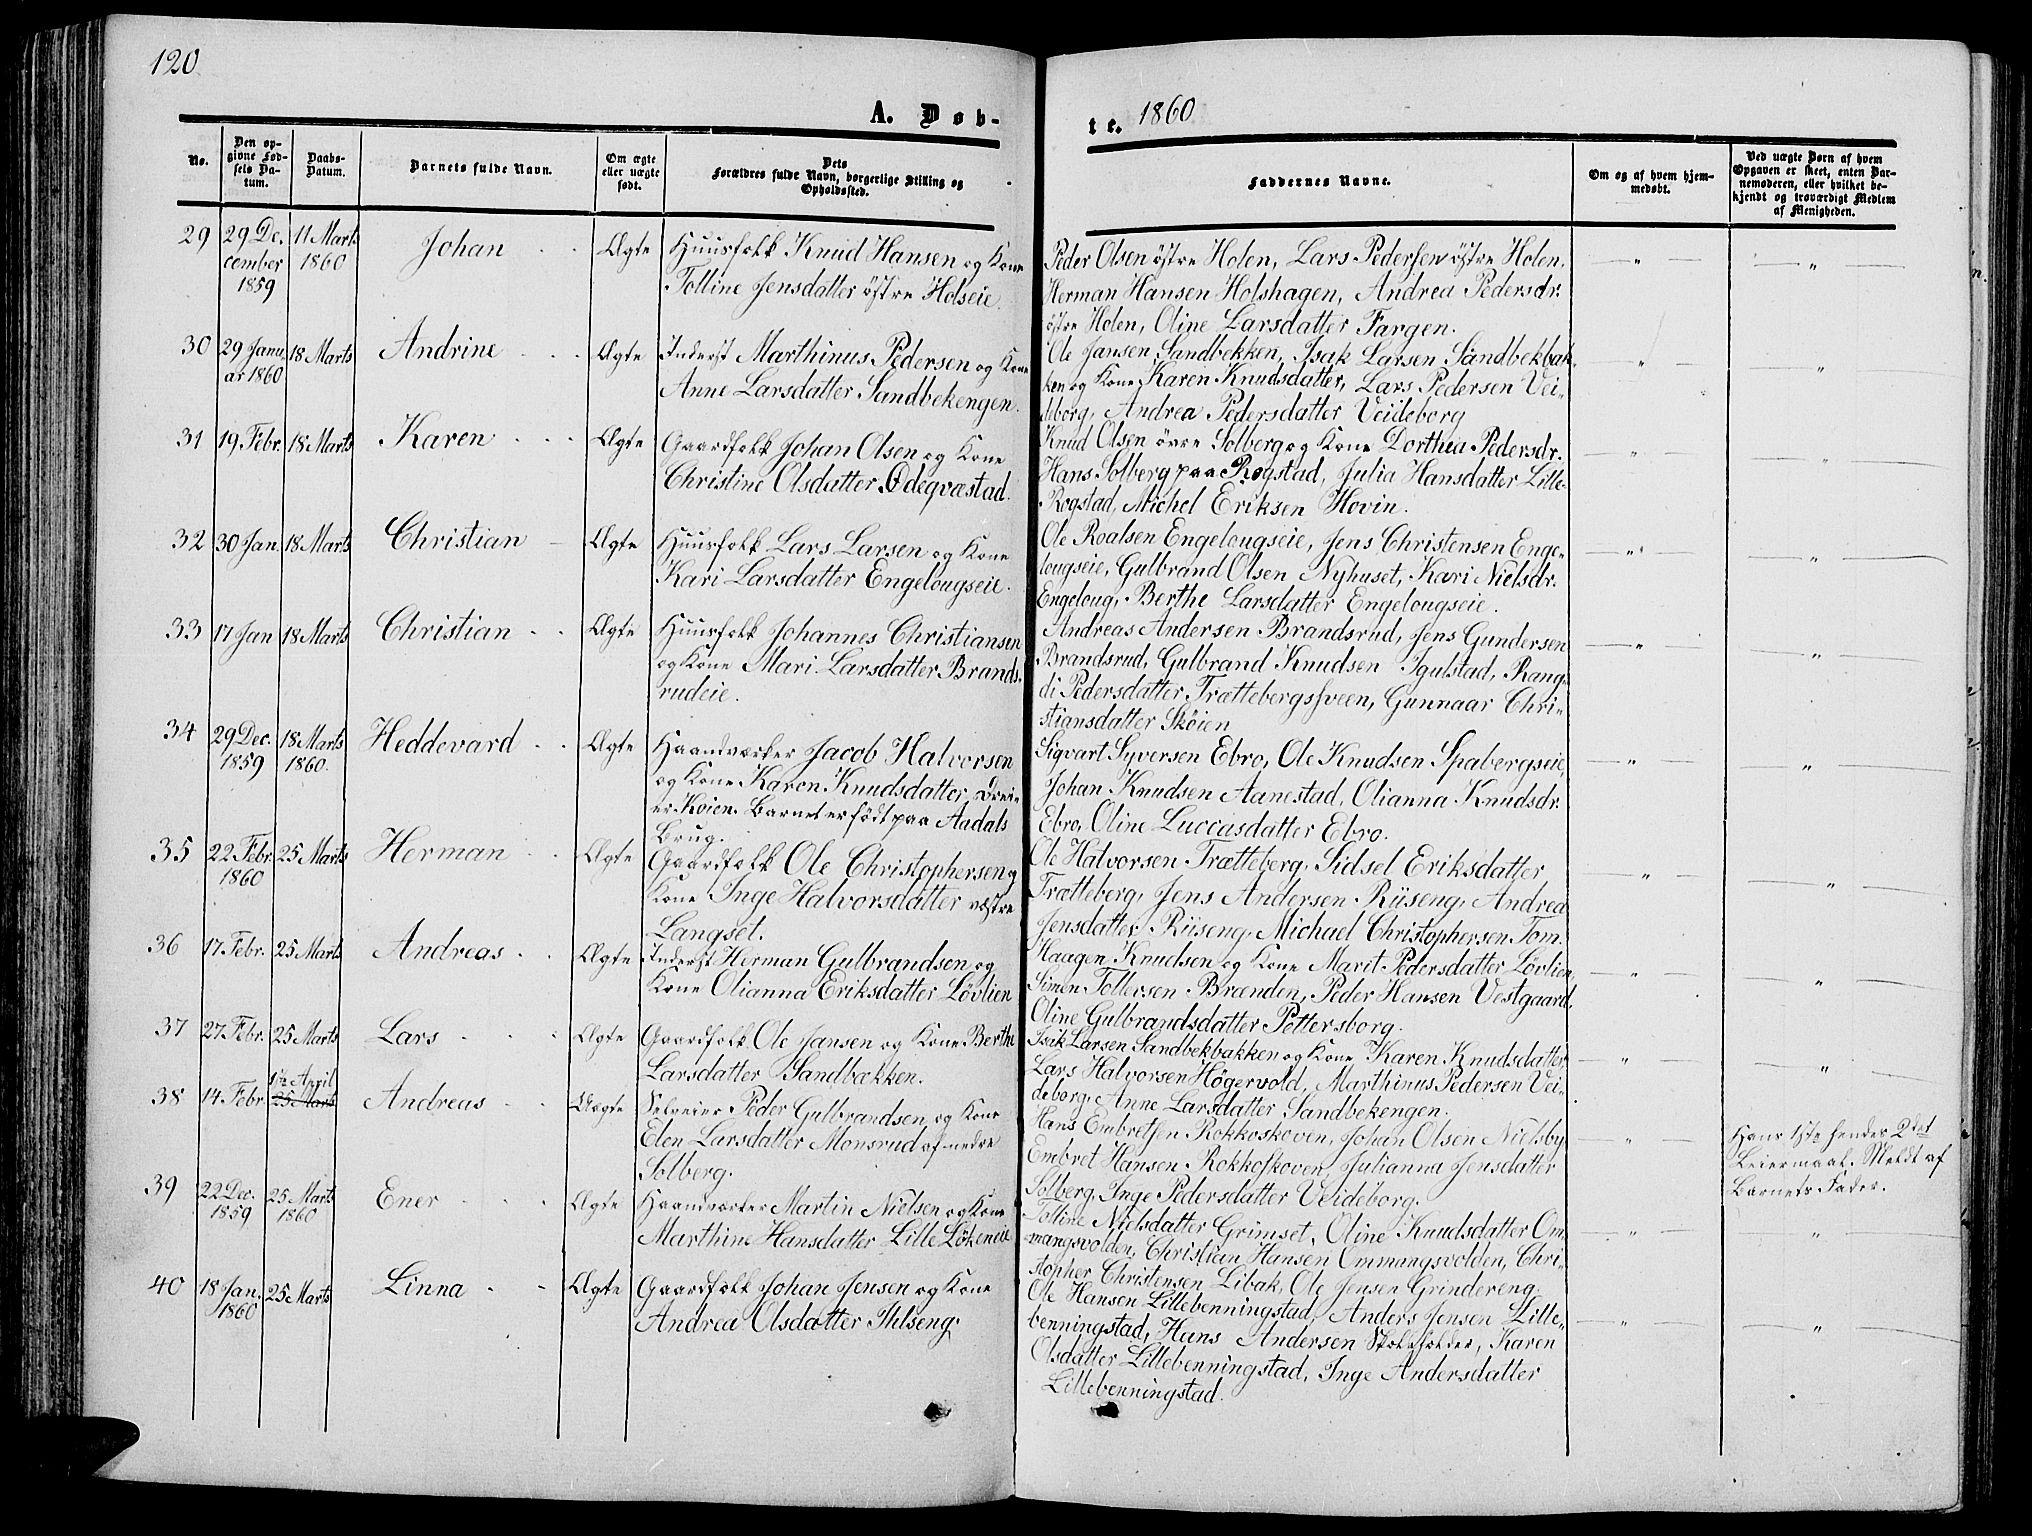 120
A. Døb-
te. 1860
No.
Den op-
givne Fød-
sels Da-
tum.
Daabs-
Datum.
Barnets fulde Navn.
Om ægte
eller uægte
født.
Dets
Forældres fulde Navn, borgerlige Stilling og
Opholdssted.
Faddernes Navne.
Om og af hvem hjem-
medøbt.
Ved uægte Børn af hvem
Opgaven er skeet, enten Bar-
nemoderen, eller hvilket be-
kjendt og troværdigt Medlem
af Menigheden.
29
29 De-
cember
1859
11 Marts
1860
Johan
Ægte
Huusfolk Knud Hansen og Kone
Tolline Jensdatter östre Holseie.
Peder Olsen östre Holen, Lars Pedersen östre Holen.
Herman Hansen Holshagen, Andrea Pedersdr.
östre Holen, Oline Larsdatter Fargen.
30
29 Janu-
ar 1860
18 Marts
Andrine
Ægte
Inderst Marthinus Pedersen og Kone
Anne Larsdatter Sandbekengen.
Ole Jansen Sandbekken, Isak Larsen Sandbekbak-
ken og Kone Karen Knudsdatter, Lars Pedersen Vei-
deborg, Andrea Pedersdatter Veideborg
31
19 Febr.
18 Marts
Karen
Ægte
Gaardfolk Johan Olsen og Kone
Christine Olsdatter Ödeqvæstad.
Knud Olsen övre Solberg og Kone Dorthea Pedersdr.
Hans Solberg paa Rogstad, Julia Hansdatter Lille-
Rogstad, Michel Eriksen Hovin.
32
30 Jan.
18 Marts
Christian
Ægte
Huusfolk Lars Larsen og Kone
Kari Larsdatter Engelougseie.
Ole Roalsen Engelougseie, Jens Christensen Enge-
lougseie, Gulbrand Olsen Nyhuset, Kari Nielsdr.
Engeloug, Berthe Larsdatter Engelougseie.
33
17 Jan
18 Marts
Christian
Ægte
Huusfolk Johannes Christiansen
og Kone Mari Larsdatter Brands-
rudeie.
Andreas Andersen Brandsrud, Jens Gundersen
Brandsrud, Gulbrand Knudsen Igulstad, Rang-
di Pedersdatter Trættebergssveen, Gunnaar Chri-
stiansdatter Sköien
34
29 Dec.
1859
18 Marts
1860.
Heddevard
Ægte
Haandværker Jacob Halvorsen
og Kone Karen Knudsdatter,
Köien. Barnet er födt paa Aadals
Brug.
Sigvart Syversen Ebro, Ole Knudsen Spabergseie,
Johan Knudsen Aanestad, Olianna Knudsdr.
Ebro, Oline Luccasdatter Ebro.
35
22 Febr.
1860
25 Marts
Herman
Ægte
Gaardfolk Ole Christophersen og
Kone Inge Halvorsdatter vestre
Langset.
Ole Halvorsen Trætteberg, Sidsel Eriksdatter
Trætteberg, Jens Andersen Riiseng, Andrea
Jensdatter Riiseng, Michael Christophersen Tom.
36
17 Febr.
25 Marts
Andreas
Ægte
Inderst Herman Gulbrandsen og
Kone Olianna Eriksdatter Lövlien
Haagen Knudsen og Kone Marit Pedersdatter Lövlien,
Simen Tollersen Brænden, Peder Hansen Vestgaard,
Oline Gulbrandsdatter Pettersborg.
37
27 Febr.
25 Marts
Lars
Ægte
Gaardfolk Ole Jansen og Kone Berthe
Larsdatter Sandbækken.
Isak Larsen Sandbekbakken og Kone Karen Knudsdatter
Lars Halvorsen Högervold, Marthinus Pedersen Vei-
deborg, Anne Larsdatter Sandbekengen.
38
14 Febr.
1ste April
25 Marts
Andreas
Ægte
Selveier Peder Gulbrandsen og Kone
Elen Larsdatter Monsrud af nedre
Solberg.
Hans Embretsen Rokkoskoven, Johan Olsen Nielsby
Embret Hansen Rokkoskoven, Julianna Jensdatter
Solberg, Inge Pedersdatter Veideborg.
Hans 1ste hendes 2det
Leiermaal. Meldt af
Barnets Fader.
39
22 Dec.
1859
25 Marts
1860
Ener
Ægte
Haandværker Martin Nielsen og Kone
Marthine Hansdatter Lille Lökeneie
Tolline Nielsdatter Grimset, Oline Knudsdatter Om-
mangsvolden, Christian Hansen Ommangsvolden, Chri-
stopher Christensen Libak, Ole Jensen Grindereng.
40
18 Jan.
1860
25 Marts
Linna
Ægte
Gaardfolk Johan Jensen og Kone
Andrea Olsdatter Ihlseng.
Ole Hansen Lillebenningstad, Anders Jensen Lille-
benningstad, Hans Andersen Skoleholder, Karen
Olsdatter Lillebenningstad, Inge Andersdatter
Lillebenningstad.